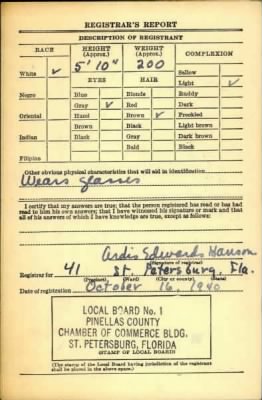 REGISTRAR'S REPORT
DESCRIPTION OF REGISTRANT
RACE HEIGHT (Approx.) WEIGHT (Approx.) COMPLEXION
5' 10" 200
White ✓ Sallow
EYES HAIR Light ✓
Negro Blue Blonde Ruddy
Gray ✓ Red Dark
Oriental Hazel Brown ✓ Freckled
Brown Black Light brown
Indian Black Gray Dark brown
Bald Black
Filipino
Other obvious physical characteristics that will aid in identification
Wears glasses
I certify that my answers are true; that the person registered has read or has had
read to him his own answers; that I have witnessed his signature or mark and that
all of his answers of which I have knowledge are true, except as follows:
Ardis Edwards Hanson
(Signature of registrar)
Registrar for 41 St. Petersburg, Fla.
(Precinct) (Ward) (City or county) (State)
Date of registration October 16, 1940
LOCAL BOARD No. 1
PINELLAS COUNTY
CHAMBER OF COMMERCE BLDG.
ST. PETERSBURG, FLORIDA
(STAMP OF LOCAL BOARD)
(The stamp of the Local Board having jurisdiction of the registrant
shall be placed in the above space.)